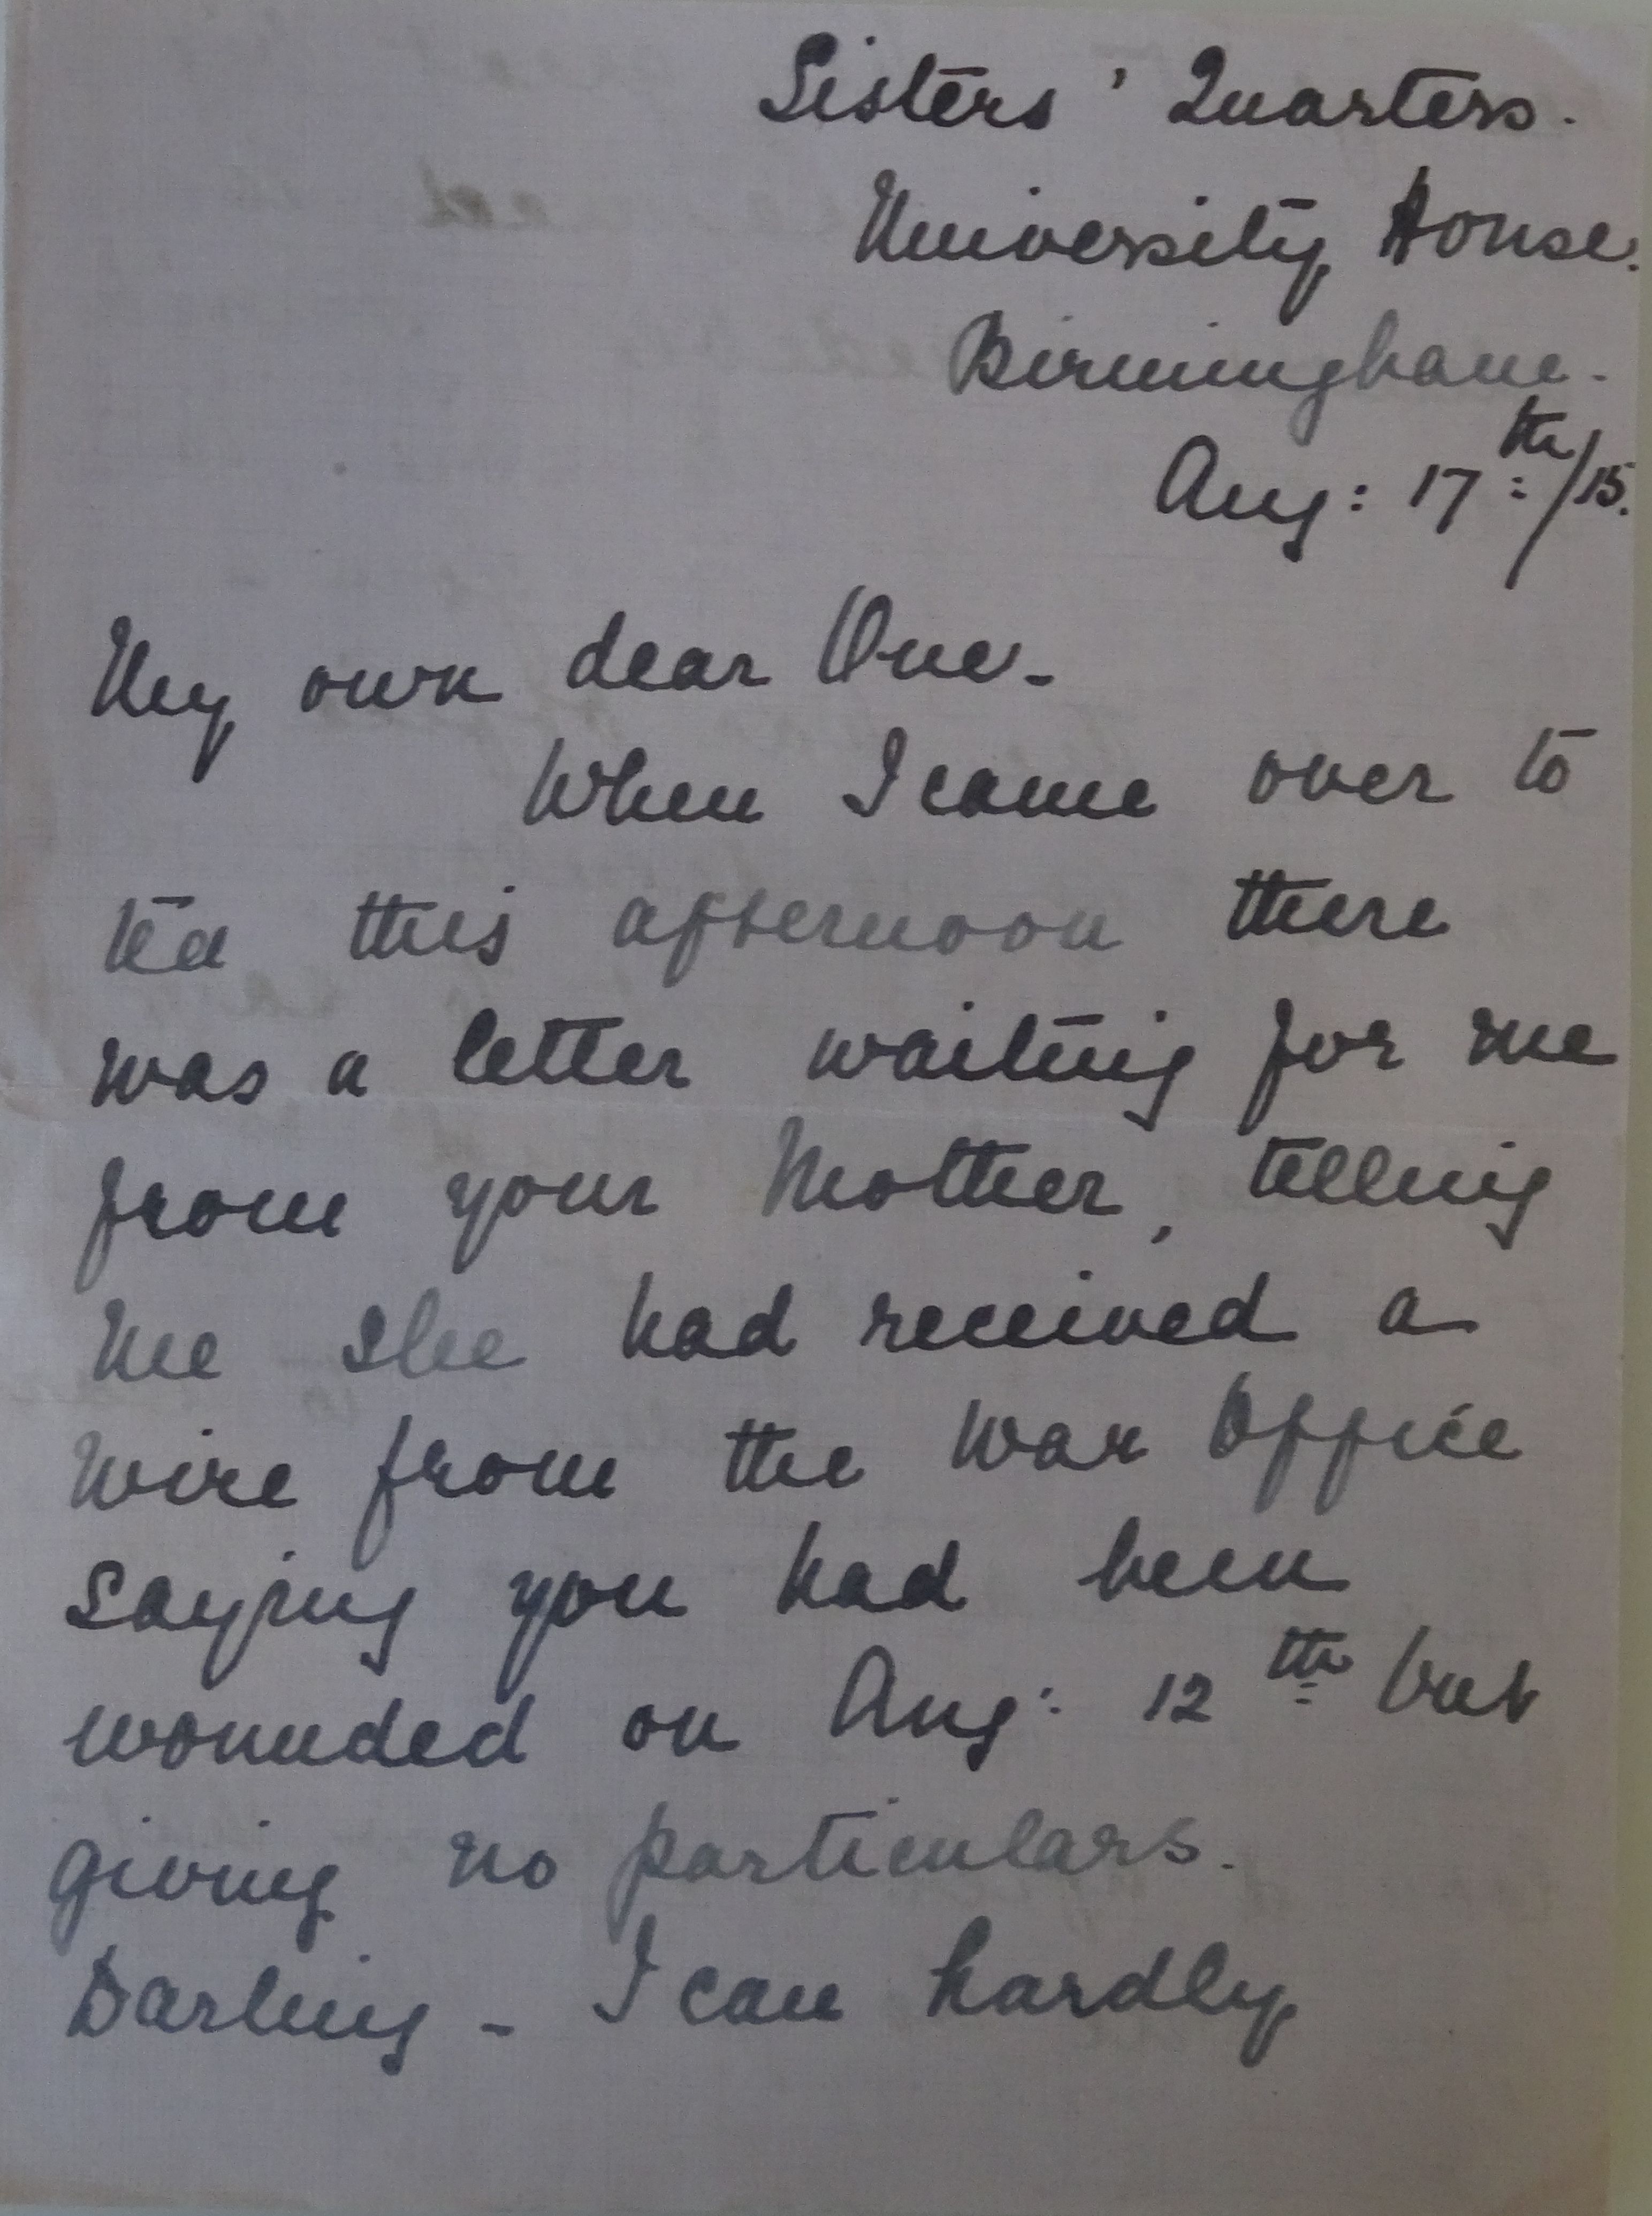 Sisters' Quarters.
University House.
Birmingham.
Aug: 17th/15.
My own dear One -
When I came over to
tea this afternoon there
was a letter waiting for me
from your Mother, telling
me she had received a
wire from the War Office
saying you had been
wounded on Aug: 12th but
giving no particulars.
Darling - I can hardly